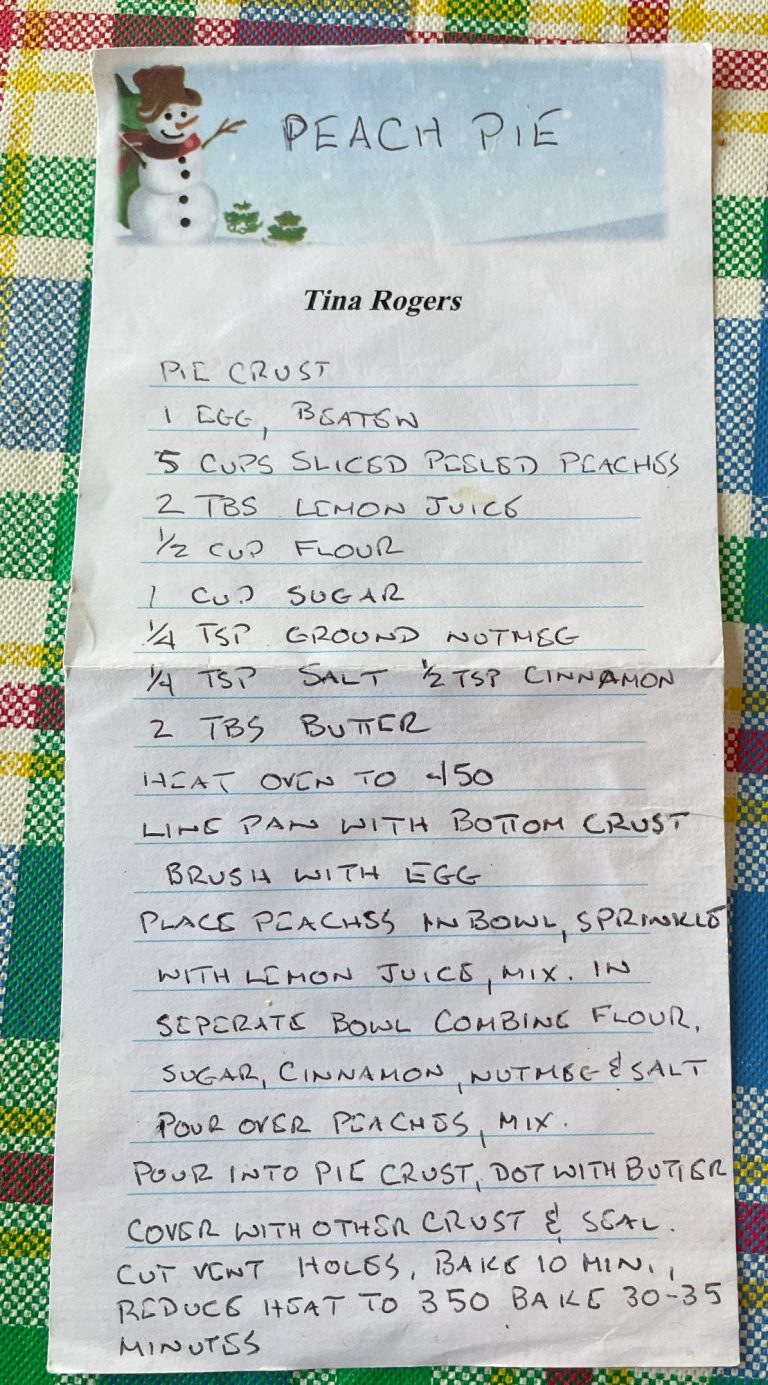 PEACH PIE
Tina Rogers
PIE CRUST
1 EGG, BEATEN
5 CUPS SLICED PEELED PEACHES
2 TBS LEMON JUICE
1/2 CUP FLOUR
1 CUP SUGAR
1/4 TSP GROUND NUTMEG
1/4 TSP SALT 1/2 TSP CINNAMON
2 TBS BUTTER
HEAT OVEN TO 450
LINE PAN WITH BOTTOM CRUST
BRUSH WITH EGG
PLACE PEACHES IN BOWL, SPRINKLE
WITH LEMON JUICE, MIX. IN
SEPERATE BOWL COMBINE FLOUR,
SUGAR, CINNAMON, NUTMEG & SALT
POUR OVER PEACHES, MIX.
POUR INTO PIE CRUST, DOT WITH BUTTER
COVER WITH OTHER CRUST & SEAL.
CUT VENT HOLES, BAKE 10 MIN.,
REDUCE HEAT TO 350 BAKE 30-35
MINUTES